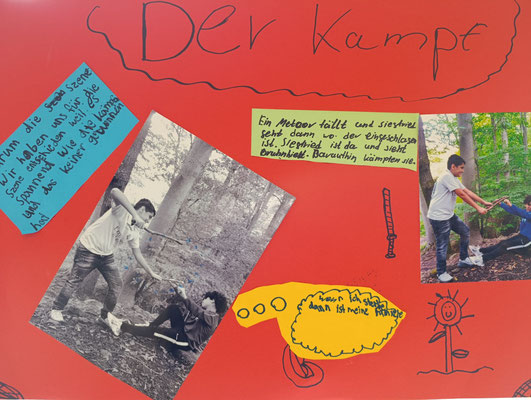 Der Kampf
Warum die Szene
Wir haben uns für die
Szene entschieden weil es
spannend wie die kämpfen
und das keiner gewonnen
hat
Ein Meteor fällt und siegfried
geht dann wo der eingeschlagen
ist. Siegfried ist da und sieht
Brunhield. Daraufhin kämpfen sie.
wenn ich sterbe
dann ist meine